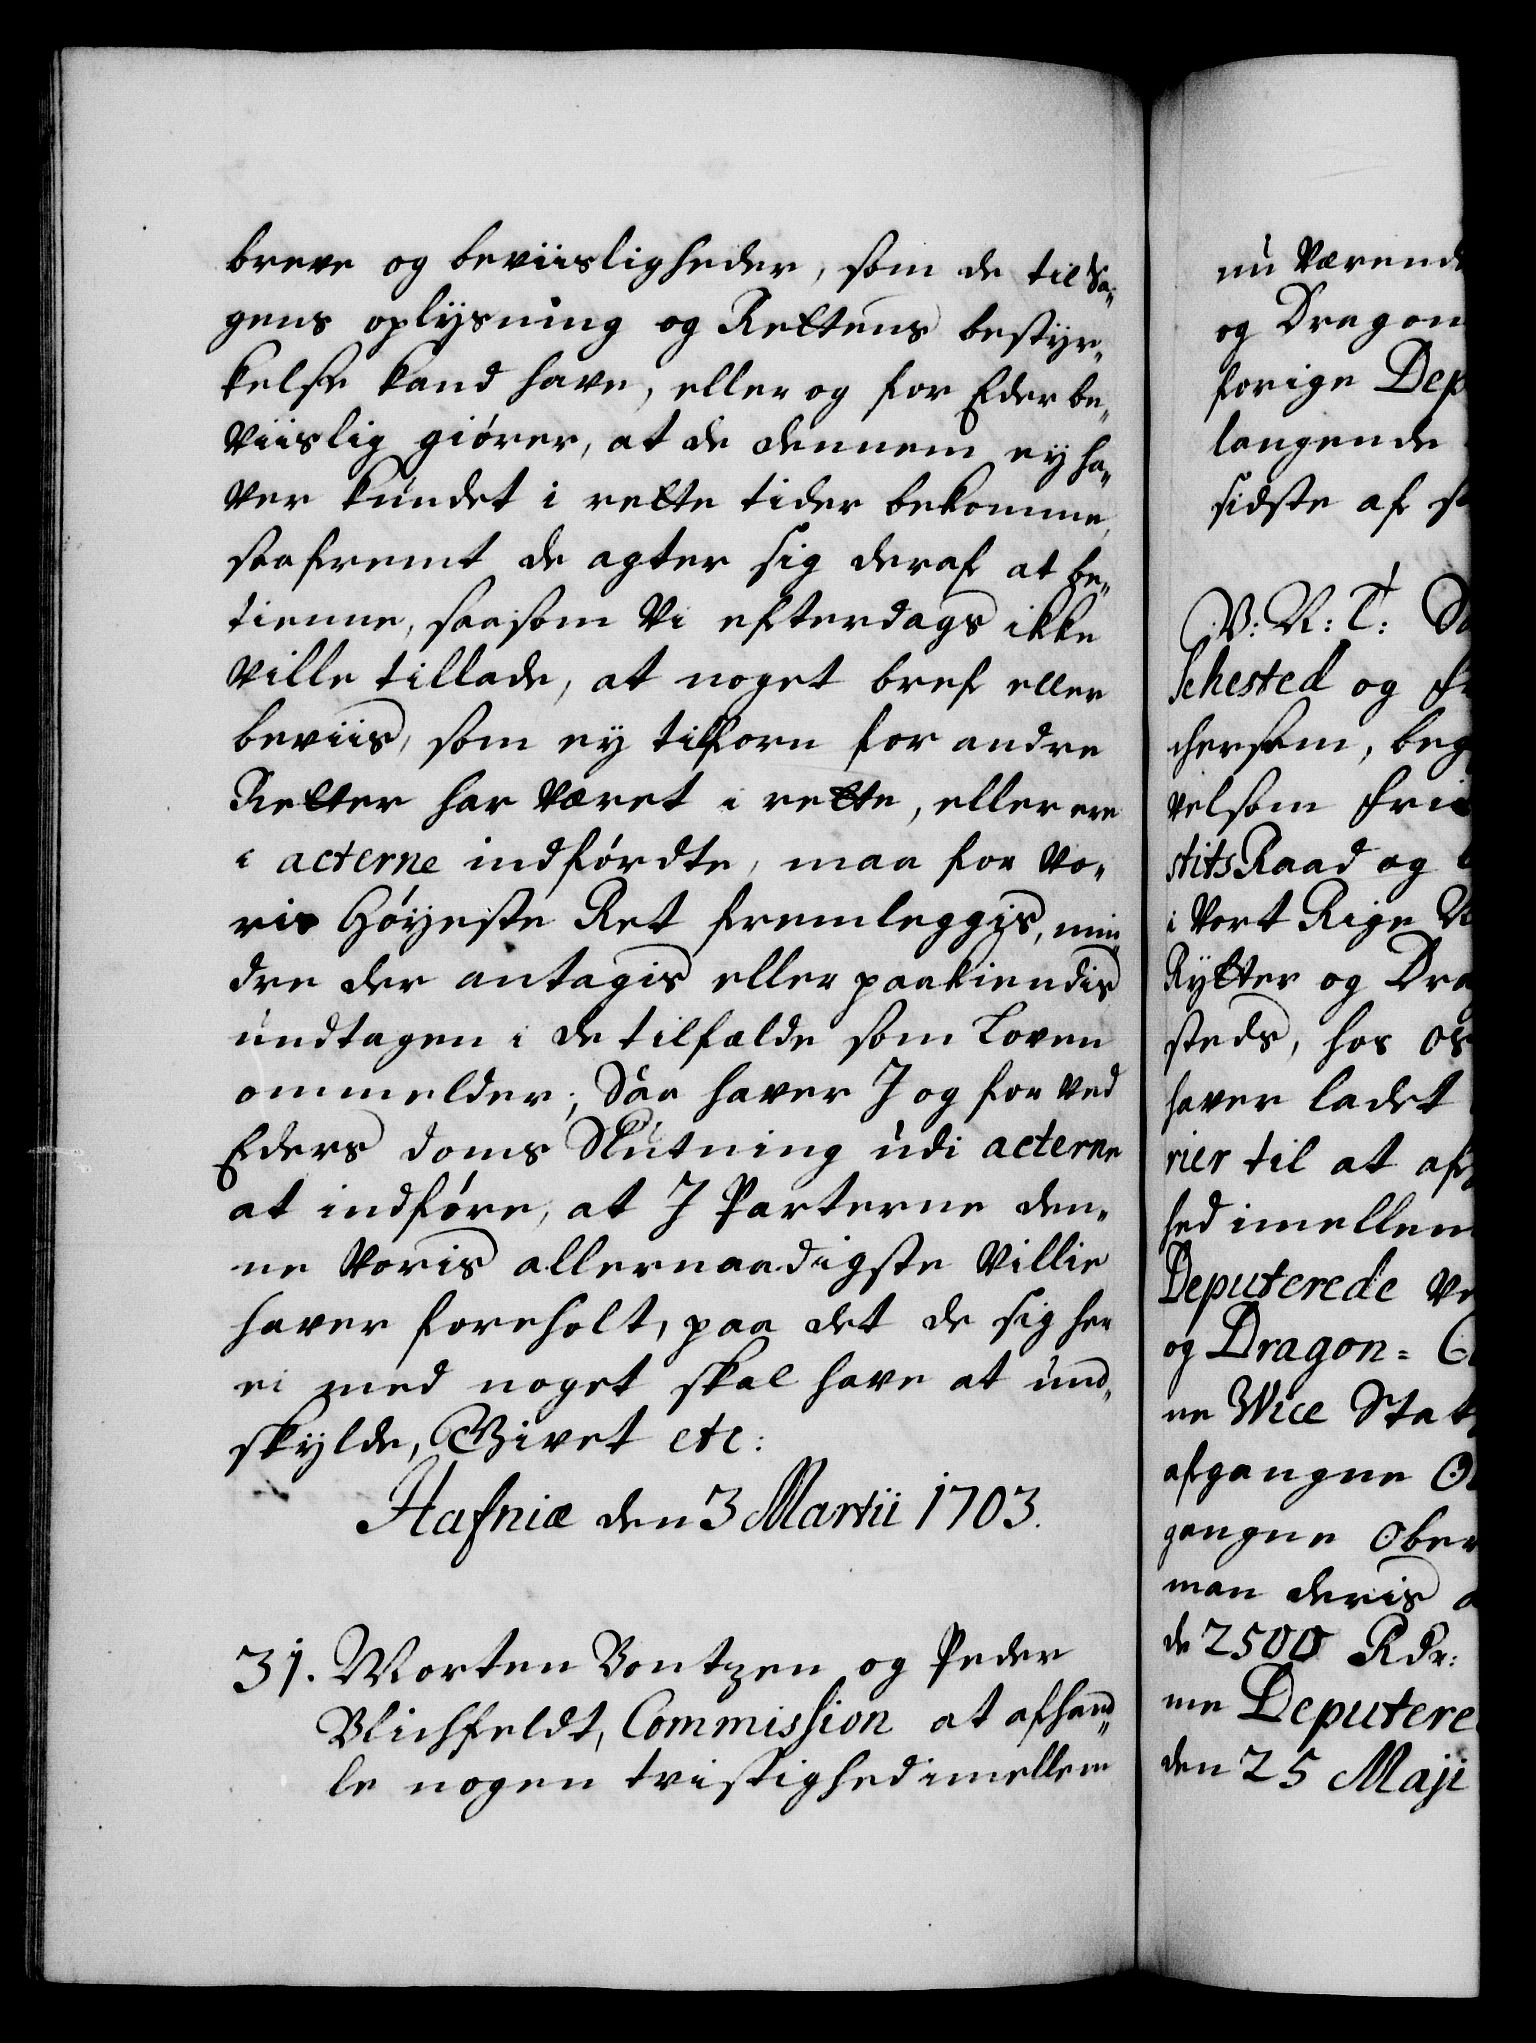 breve og beviisligheder, som de til Sa„
gens oplysning og Rettens bestyr„
kelse kand have, eller og for Eder be„
viislig giörer, at de dennem ey ha„
ver kundet i rette tider bekomme,
saafremt de agter sig deraf at be„
tienne, saasom Vi efterdags ikke
ville tillade, at noget bref eller
beviis, som ey tilforn for andre
Retter har været i rette, eller ere
i acterne indfördte, maa for Vo„
ris Höyeste Ret fremleggis, min„
dre der antagis eller paakiendis
undtagen i de tilfælde som Loven
ommelder; Saa haver I og for ved
Eders doms Slutning udi acterne
at indföre, at I Parterne den„
ne Voris allernaadigste Villie
haver foreholt, paa det de sig her
ei med noget skal have at und„
skylde, Givet etc:
Hafniæ den 3 Martii 1703.
31. Morten Bontzen og Peder
Blichfeldt, Commission at afhand„
le nogen tvistighed imellem
nu værende
og Dragon
forige Dep
langende
sidste af
V: N: T:
Sehested og
chersom, beg
velsom Fri
stits Raad og
i Vort Rige N
Rytter og Dra
steds, hos os
haver ladet
rier til at af
hed imellem
Deputerede ve
og Dragon=
ne Vice Stat
afgangne O
gangne Ober
man deris a
de 2500 Rdr:
me Deputere
den 25 Maji